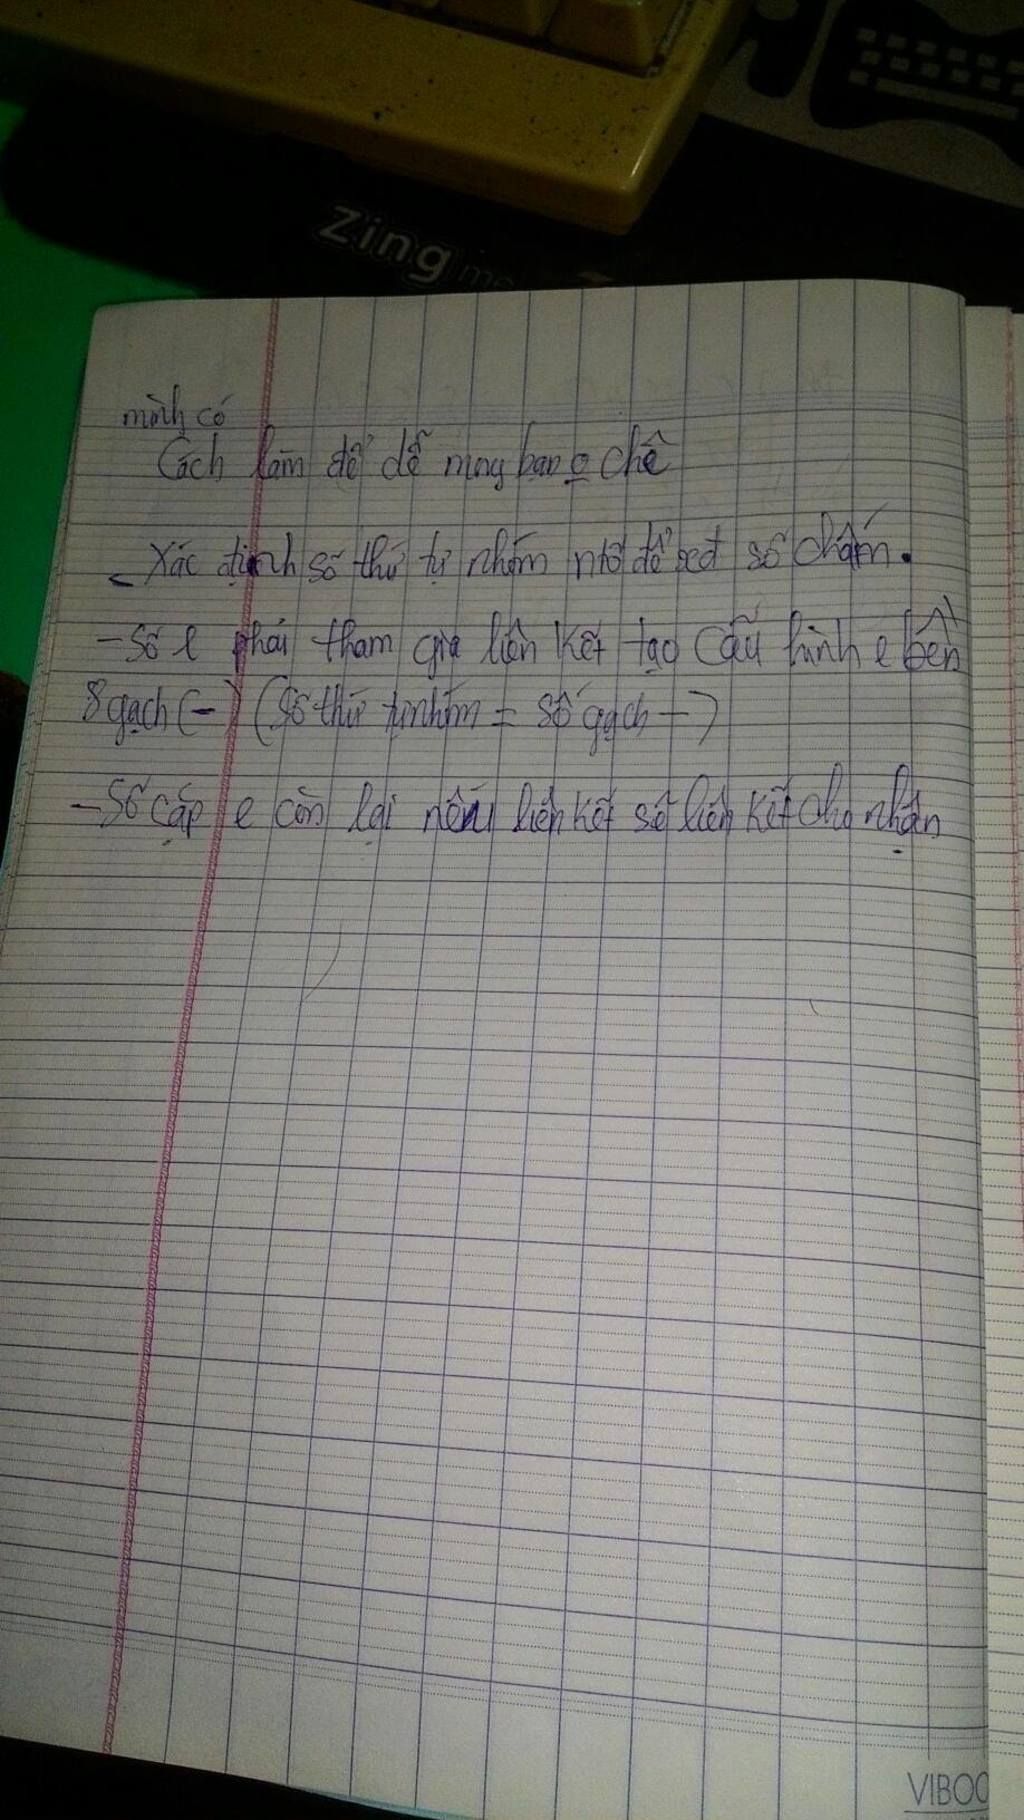 Zing me
mình có
Cách làm để dễ mong bạn o chê
- Xác định số thứ tự nhóm ntố để xét số chấm.
- Số e phải tham gia liên kết tạo cấu hình e bền
8 gạch (-) (số thứ tự nhóm = số gạch -)
- Số cặp e còn lại liên kết sẽ liên kết cho nhận
VIBOO